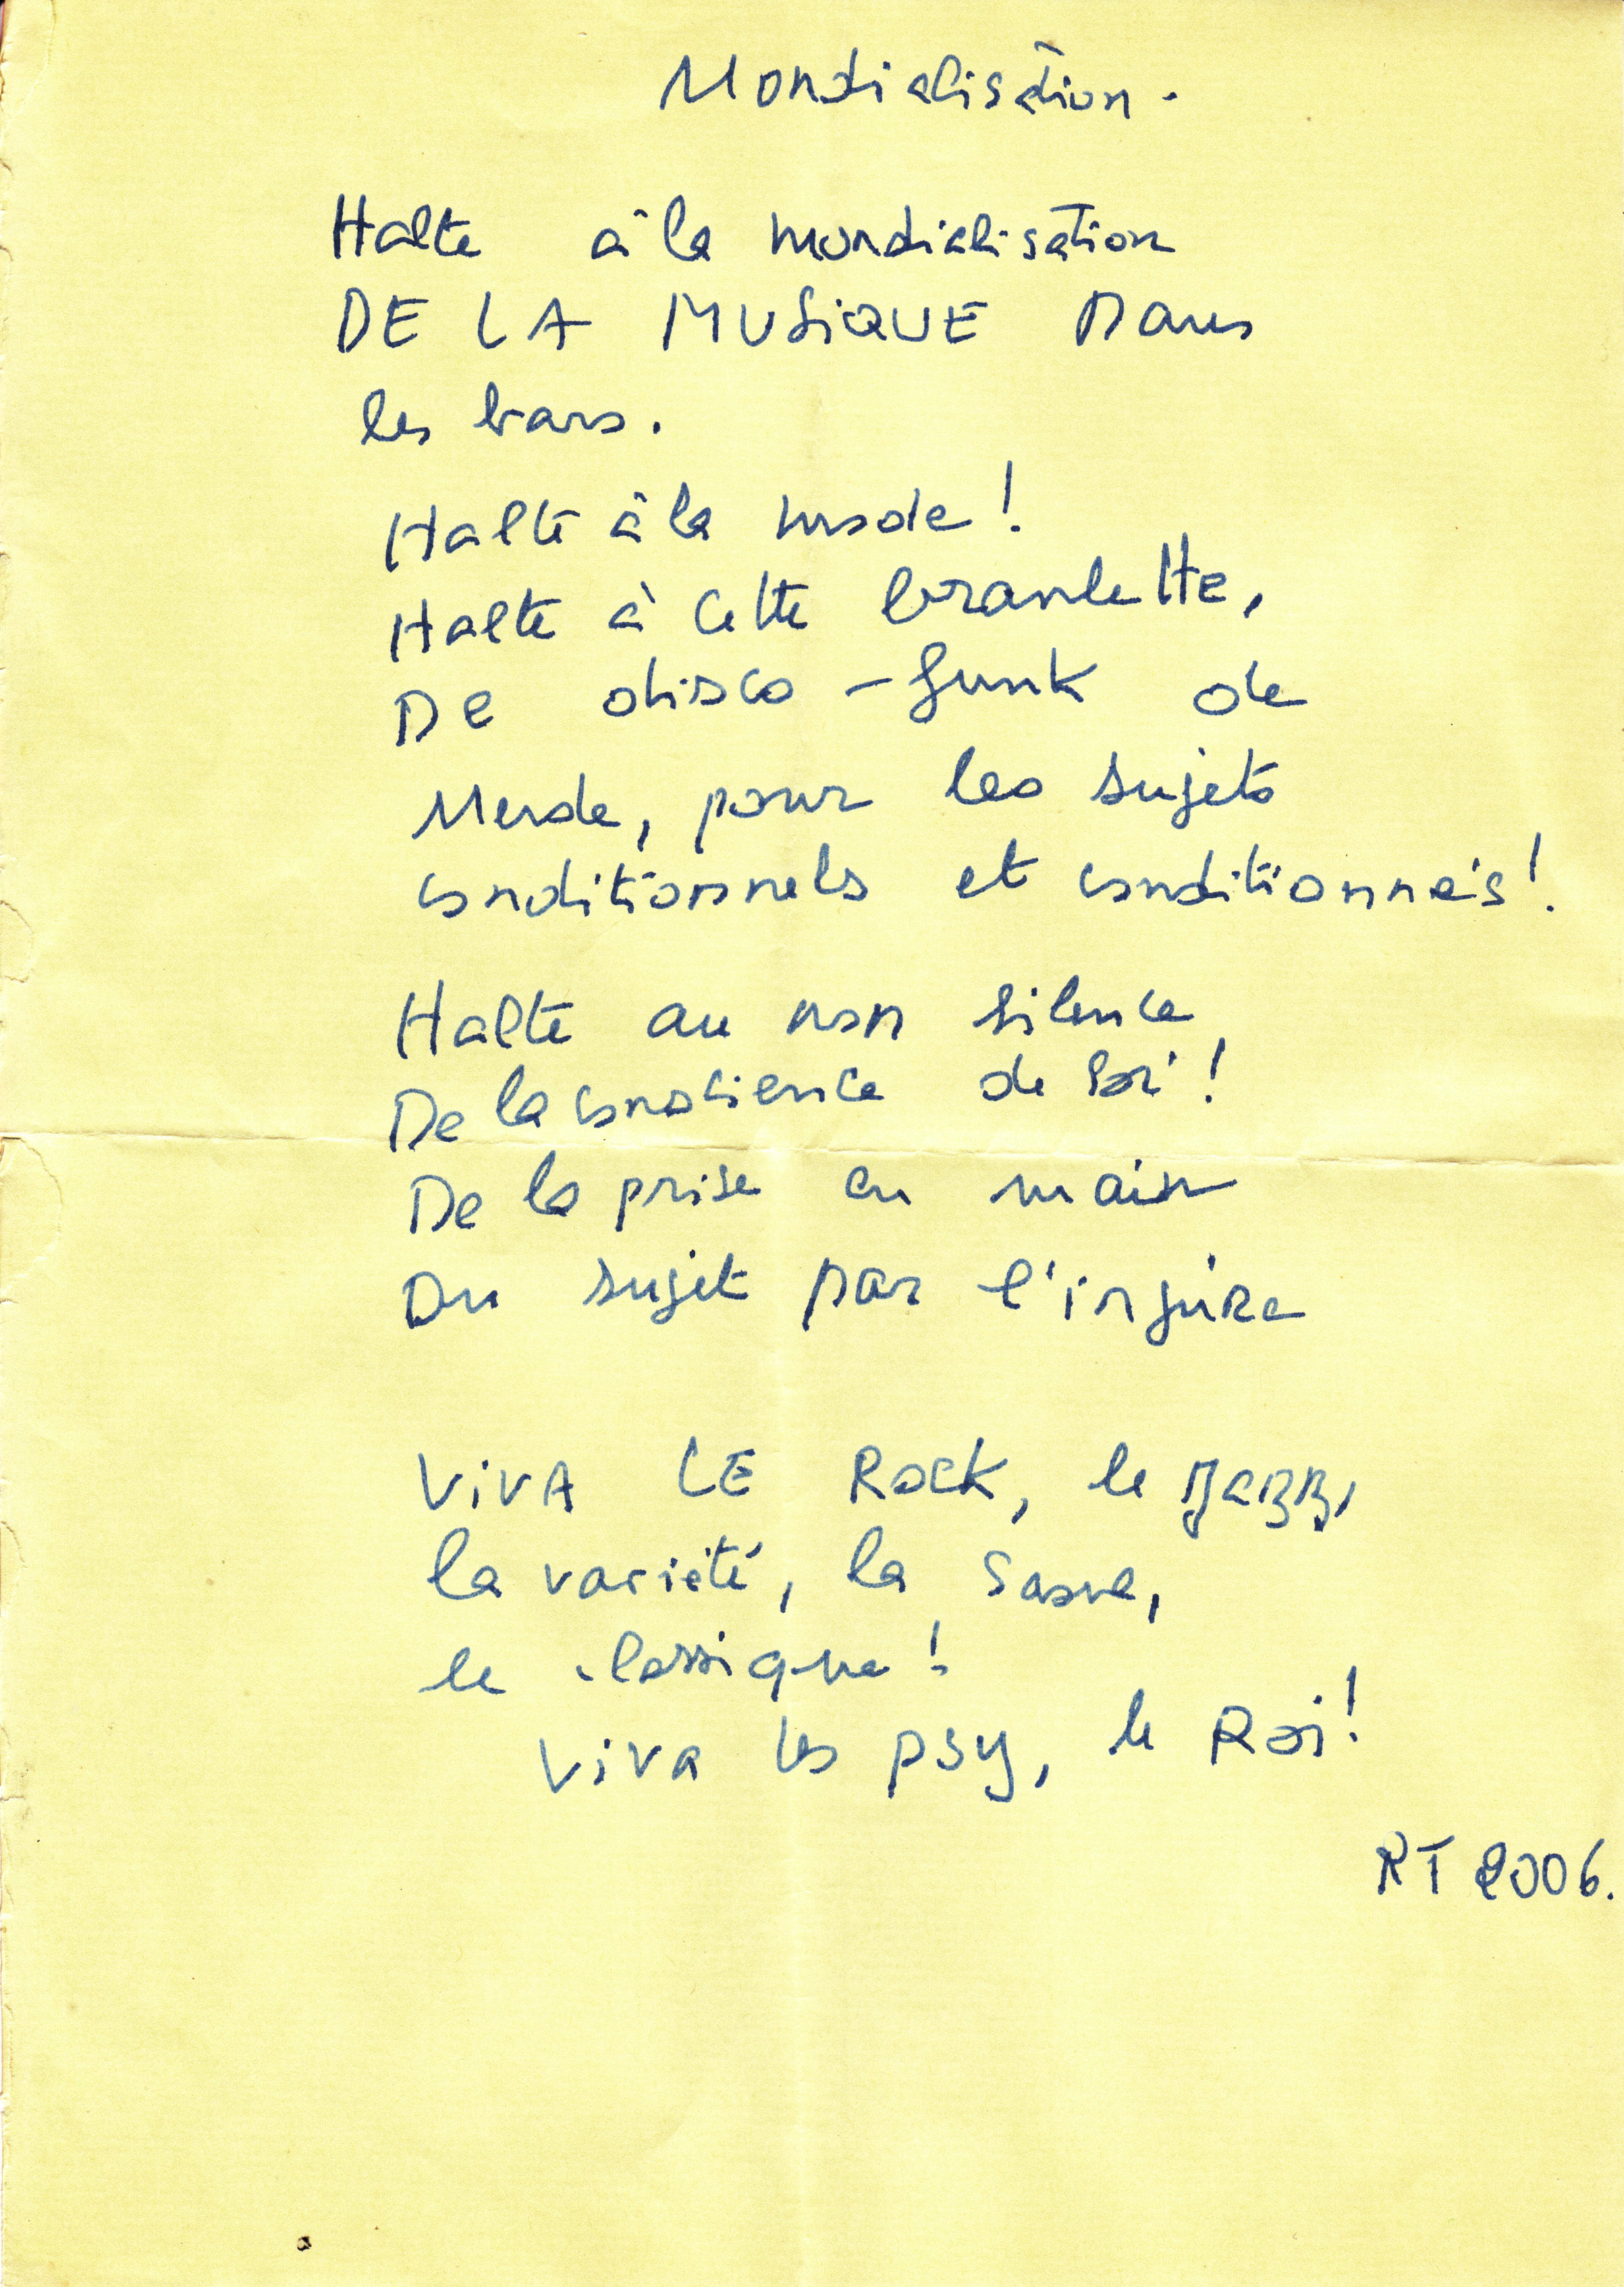 Mondialisation.
Halte à la mondialisation
DE LA MUSIQUE Dans
les bars.
Halte à la mode !
Halte à cette branlette,
De disco-funk de
Merde, pour les sujets
conditionnels et conditionnés !
Halte au non silence
De la conscience de soi !
De la prise en main
Du sujet par
ViVA LE Rock, le Jazz,
la variété, la
le classique !
Viva les psy, le Roi !
RT 2006.